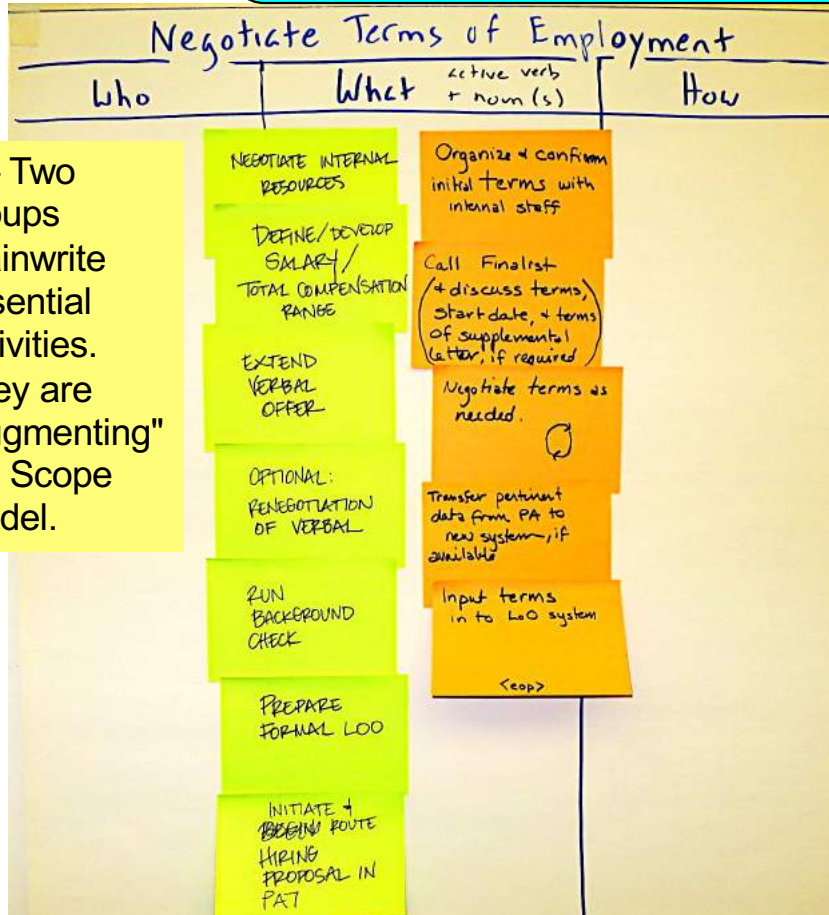 Negotiate Terms of Employment
Who
What
active verb
+ noun(s)
How
Two
oups
ainwrite
sential
ivities.
ey are
ugmenting"
Scope
del.
NEGOTIATE INTERNAL
RESOURCES
DEFINE/DEVELOP
SALARY/
TOTAL COMPENSATION
RANGE
EXTEND
VERBAL
OFFER
OPTIONAL:
RENEGOTIATION
OF VERBAL
RUN
BACKGROUND
CHECK
PREPARE
FORMAL LOO
INITIATE +
ROUTE
HIRING
PROPOSAL IN
PA7
Organize & confirm
initial terms with
internal staff
Call Finalist
(+ discuss terms,
start date, + terms
of supplemental
letter, if required)
Negotiate terms as
needed.
Transfer pertinent
data from PA to
new system, if
available
Input terms
in to LoO system
<eop>